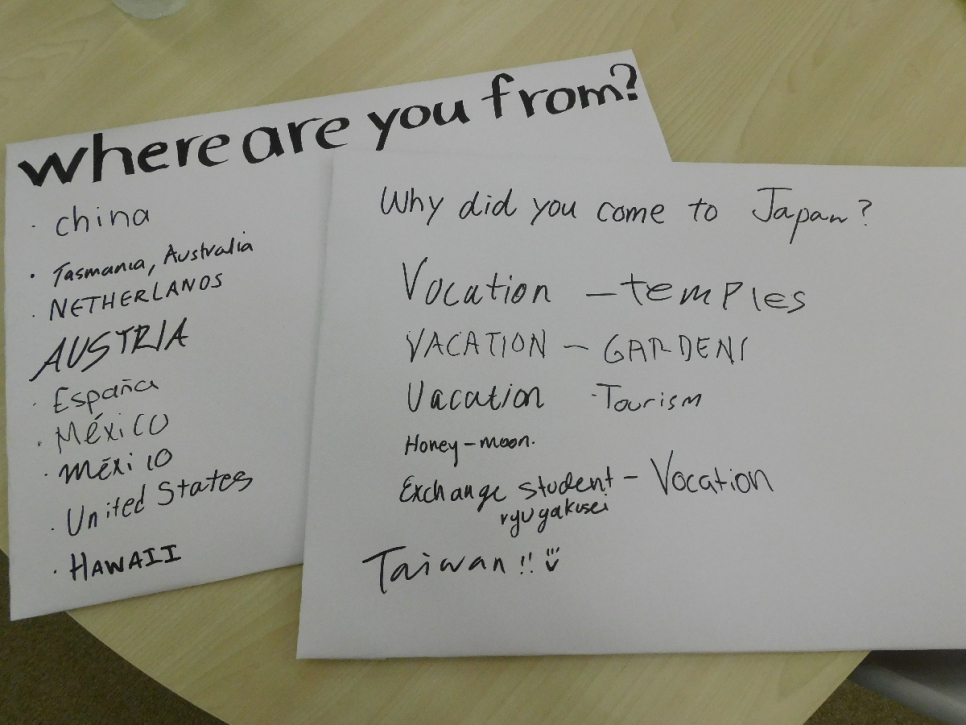 where are you from?
· china
· Tasmania, Australia
· NETHERLANDS
AUSTRIA
· España
· MéxiCO
· méxico
· United States
· HAWAII
Why did you come to Japan?
Vocation - temples
VACATION - GARDENS
Vacation ·Tourism
Honey-moon.
Exchange student - Vocation
ryugakusei
Taiwan!!